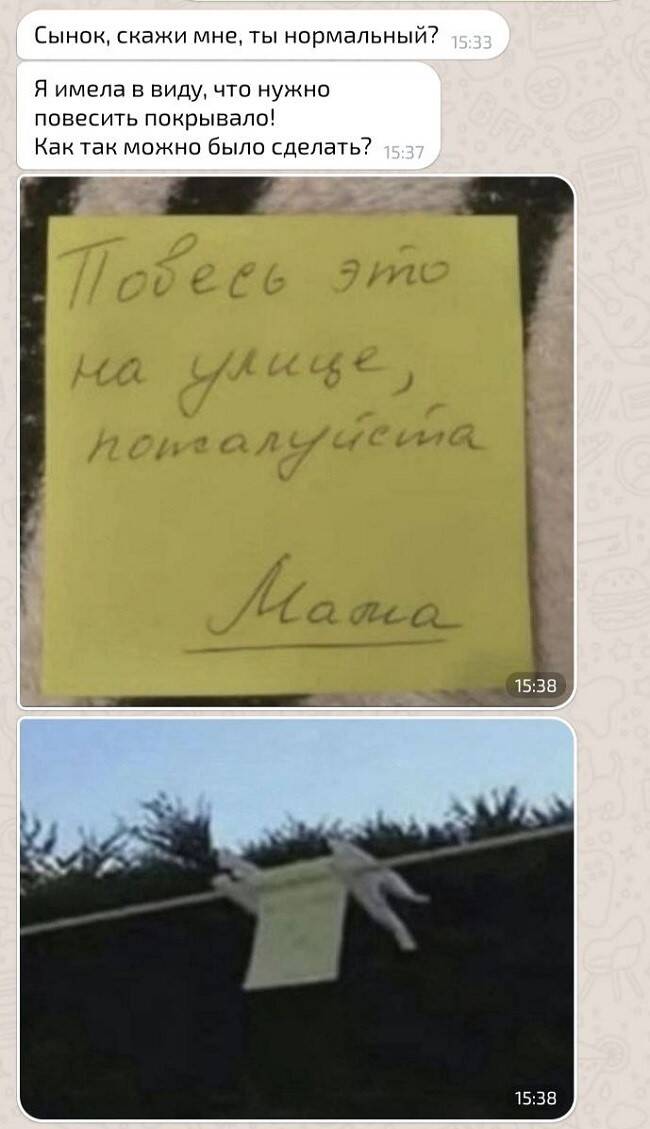 Сынок, скажи мне, ты нормальный? 15:33
Я имела в виду, что нужно
повесить покрывало!
Как так можно было сделать? 15:37
Повесь это
на улице,
пожалуйста
Мама
15:38
15:38